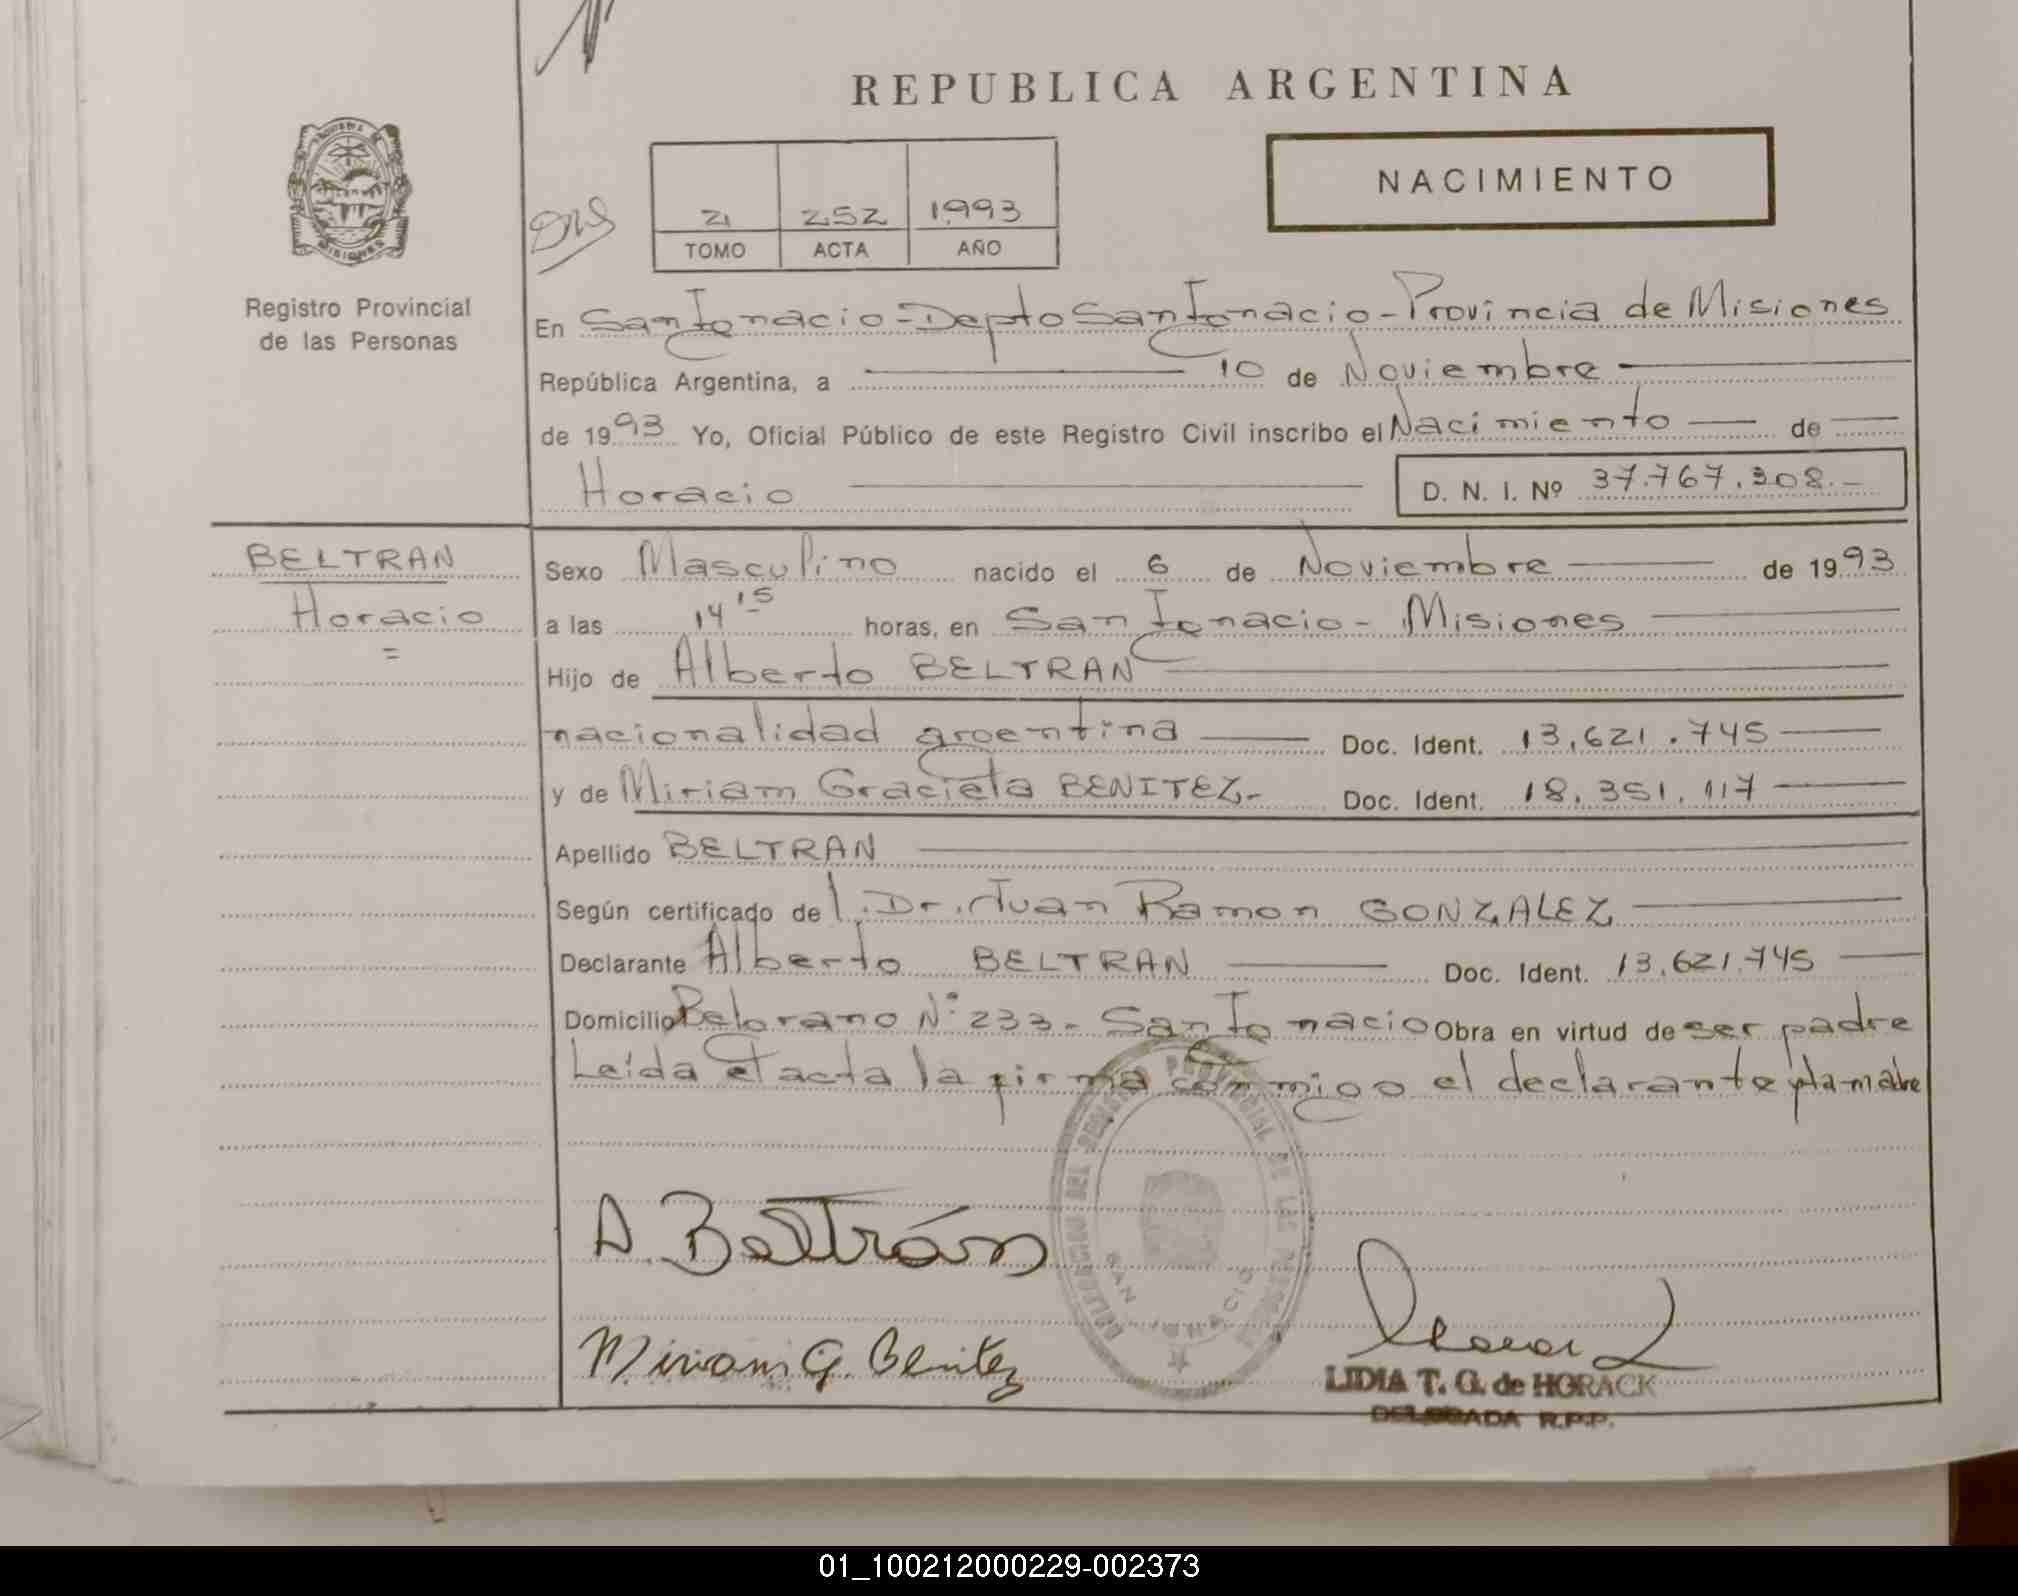 REPUBLICA ARGENTINA
NACIMIENTO
21 252 1993
TOMO ACTA AÑO
Registro Provincial
de las Personas
En San Ignacio - Depto San Ignacio - Provincia de Misiones
República Argentina, a 10 de Noviembre
de 1993 Yo, Oficial Público de este Registro Civil inscribo el Nacimiento de
Horacio D. N. I. Nº 37.767.308.-
BELTRAN
Horacio
=
Sexo Masculino nacido el 6 de Noviembre de 1993
a las 14 15 horas, en San Ignacio - Misiones
Hijo de Alberto BELTRAN
nacionalidad argentina Doc. Ident. 13.621.745
y de Miriam Graciela BENITEZ- Doc. Ident. 18.351.117
Apellido BELTRAN
Según certificado de l. Dr. Juan Ramon GONZALEZ
Declarante Alberto BELTRAN Doc. Ident. 13.621.745
Domicilio Belgrano Nº 233 - San Ignacio Obra en virtud de ser padre
Leída el acta la firma conmigo el declarante y la madre
DELEGACION DEL REGISTRO PROVINCIAL DE LAS PERSONAS
SAN IGNACIO
A. Beltrán
Miriam G. Benitez
LIDIA T. G. de HORACK
DELEGADA R.P.P.
01_100212000229-002373